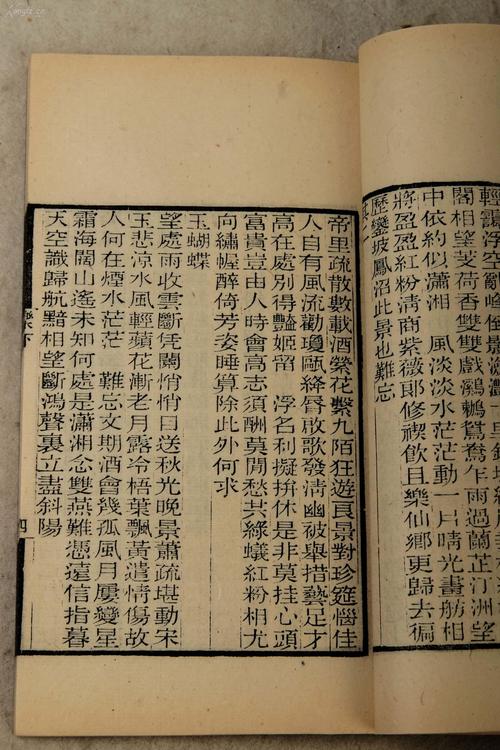 輕
閣相望芰荷香雙雙戲鸂鶒鴛鴦乍雨過蘭芷汀洲望
中依約似瀟湘　風淡淡水茫茫動一片晴光畫舫相
將盈盈紅粉清商紫薇郎修禊飲且樂仙鄉更歸去徧
歷鑾坡鳳沼此景也難忘
其
帝里疏散數載酒縈花繫九陌狂遊良景對珍筵惱佳
人自有風流勸瓊甌絳唇啟歌發清幽被舉措藝足才
高在處別得豔姬留　浮名利擬拚休是非莫挂心頭
富貴豈由人時會高志須酬莫閒愁共綠蟻紅粉相尤
向繡幄醉倚芳姿睡算除此外何求
玉蝴蝶
望處雨收雲斷凭闌悄悄目送秋光晚景蕭疏堪動宋
玉悲涼水風輕蘋花漸老月露冷梧葉飄黃遣情傷故
人何在煙水茫茫　難忘文期酒會幾孤風月屢變星
霜海闊山遙未知何處是瀟湘念雙燕難憑遠信指暮
天空識歸航黯相望斷鴻聲裏立盡斜陽
下
四